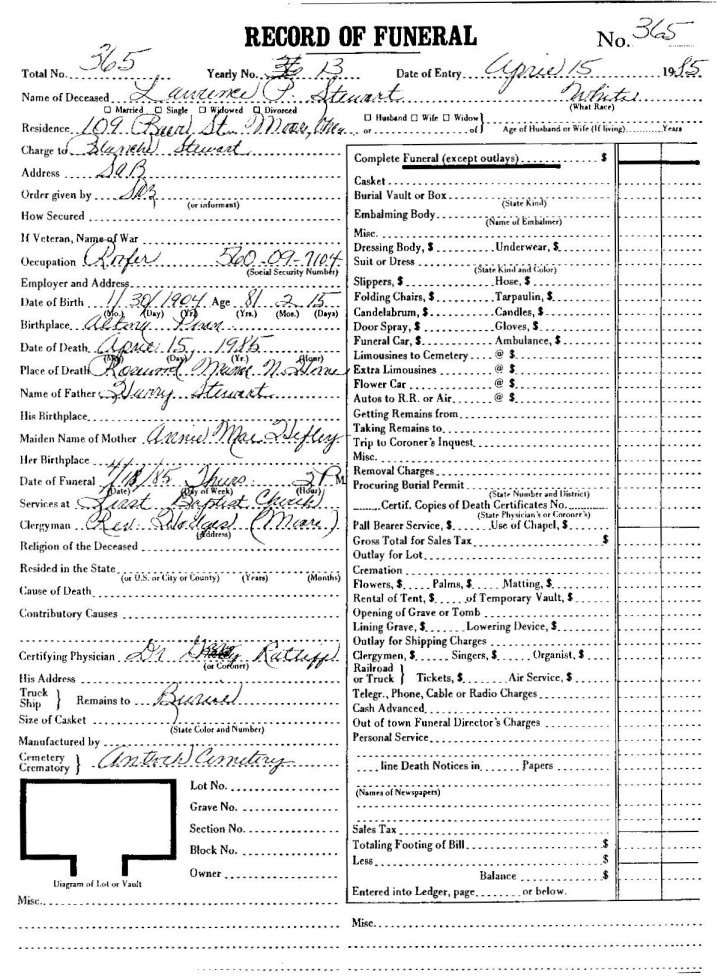 RECORD OF FUNERAL No. 365
Total No. 365 Yearly No. 13 Date of Entry April 15 1985
Name of Deceased Lawrence P. Stewart White
(What Race)
☐ Married ☐ Single ☐ Widowed ☐ Divorced ☐ Husband ☐ Wife ☐ Widow }
Residence 109 St. Moore, or of } Age of Husband or Wife (If living) Years
Charge to Blanche Stewart
Address SAB
Order given by SAB
(or informant)
How Secured
If Veteran, Name of War
Occupation Roofer 560-09-7104
(Social Security Number)
Employer and Address
Date of Birth 1/30/1904 Age 81 2 15
(Mo.) (Day) (Yr.) (Yrs.) (Mos.) (Days)
Birthplace
Date of Death April 15 1985
(Mo.) (Day) (Yr.) (Hour)
Place of Death Rosewood Manor N. Home
Name of Father Harry Stewart
His Birthplace
Maiden Name of Mother Annie Mae Hefley
Her Birthplace
Date of Funeral 4/18/85 Thurs 2 P M
(Date) (Day of Week) (Hour)
Services at First Baptist Church
Clergyman Rev. Hodges (Moore)
(Address)
Religion of the Deceased
Resided in the State
(or U.S. or City or County) (Years) (Months)
Cause of Death
Contributory Causes
Certifying Physician Dr. Ratliff
(or Coroner)
His Address
Truck
Ship } Remains to Burial
Size of Casket
(State Color and Number)
Manufactured by
Cemetery
Crematory } Antioch Cemetery
Lot No.
Grave No.
Section No.
Block No.
Owner
Diagram of Lot or Vault
Misc.
Complete Funeral (except outlays) $
Casket
Burial Vault or Box
(State Kind)
Embalming Body
(Name of Embalmer)
Misc.
Dressing Body, $ Underwear, $
Suit or Dress
(State Kind and Color)
Slippers, $ Hose, $
Folding Chairs, $ Tarpaulin, $
Candelabrum, $ Candles, $
Door Spray, $ Gloves, $
Funeral Car, $ Ambulance, $
Limousines to Cemetery @ $
Extra Limousines @ $
Flower Car @ $
Autos to R.R. or Air @ $
Getting Remains from
Taking Remains to
Trip to Coroner's Inquest
Misc.
Removal Charges
Procuring Burial Permit
(State Number and District)
Certif. Copies of Death Certificates No.
(State Physician's or Coroner's)
Pall Bearer Service, $ Use of Chapel, $
Gross Total for Sales Tax $
Outlay for Lot
Cremation
Flowers, $ Palms, $ Matting, $
Rental of Tent, $ of Temporary Vault, $
Opening of Grave or Tomb
Lining Grave, $ Lowering Device, $
Outlay for Shipping Charges
Clergymen, $ Singers, $ Organist, $
Railroad
or Truck } Tickets, $ Air Service, $
Telegr., Phone, Cable or Radio Charges
Cash Advanced
Out of town Funeral Director's Charges
Personal Service
line Death Notices in Papers
(Names of Newspapers)
Sales Tax
Totaling Footing of Bill $
Less $
Balance $
Entered into Ledger, page or below.
Misc.